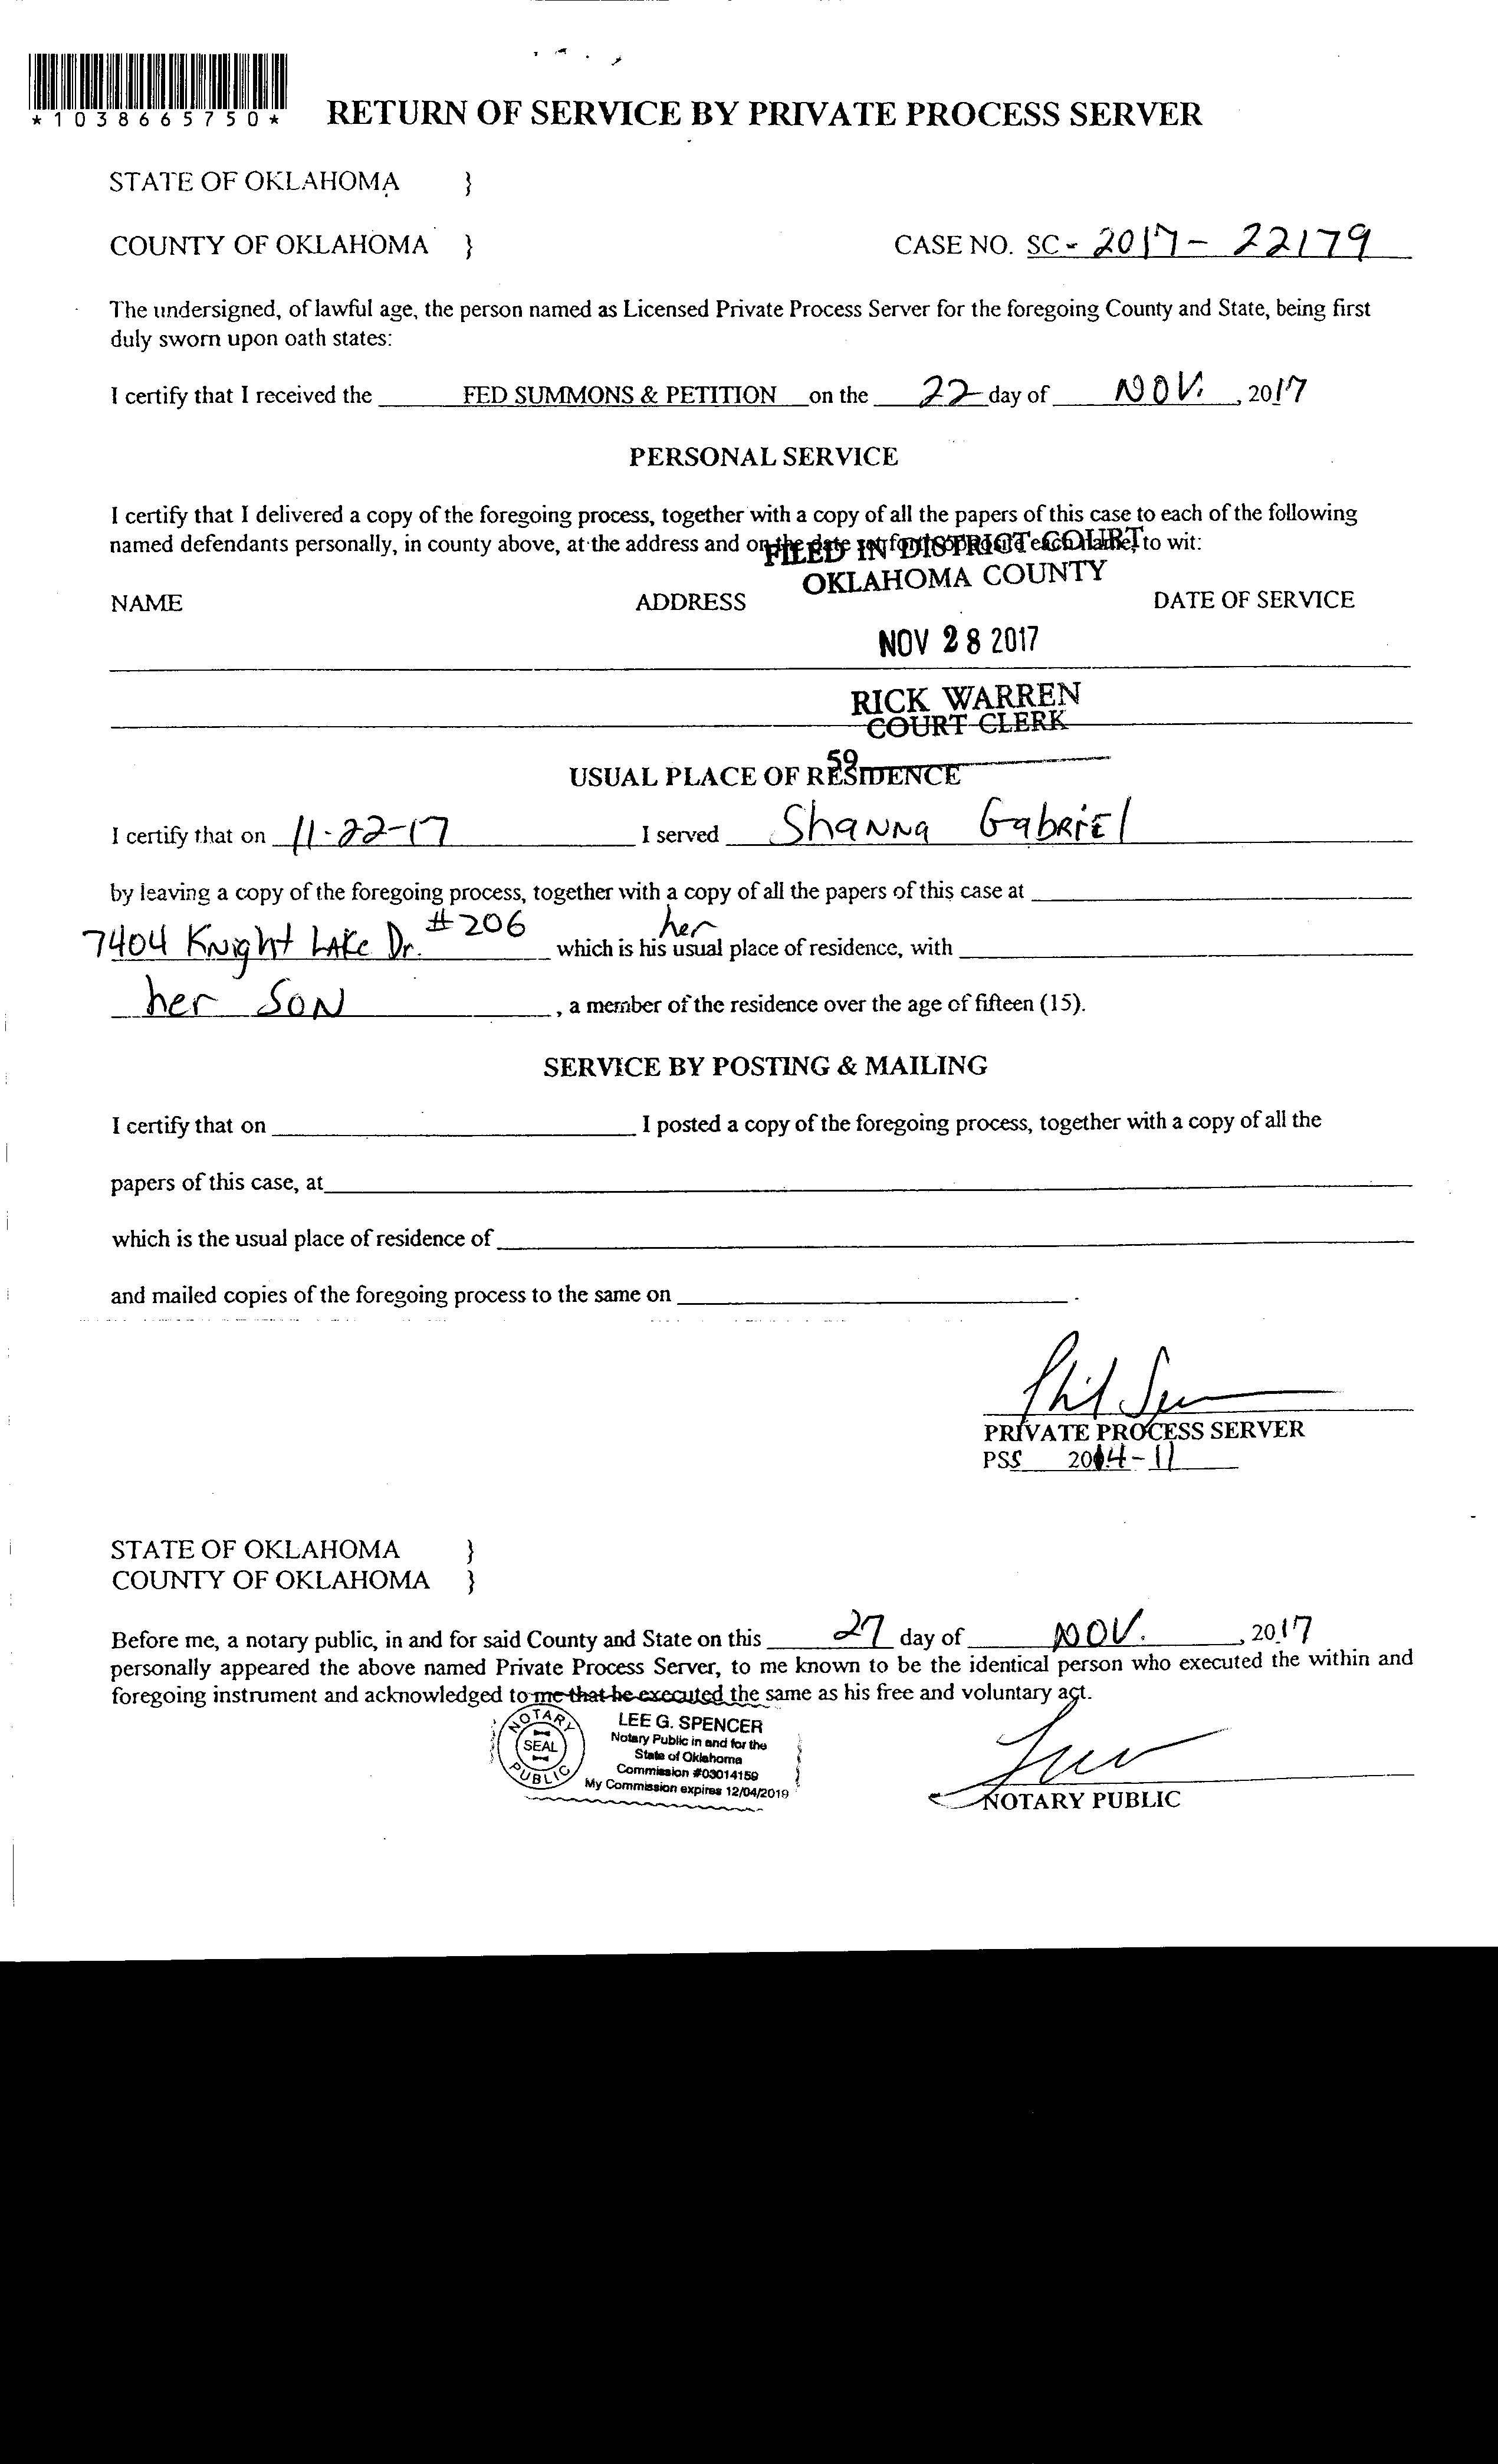 *1038665750*
RETURN OF SERVICE BY PRIVATE PROCESS SERVER
STATE OF OKLAHOMA }
COUNTY OF OKLAHOMA } CASE NO. SC - 2017 - 22179
The undersigned, of lawful age, the person named as Licensed Private Process Server for the foregoing County and State, being first
duly sworn upon oath states:
I certify that I received the FED SUMMONS & PETITION on the 22 day of NOV. , 2017
PERSONAL SERVICE
I certify that I delivered a copy of the foregoing process, together with a copy of all the papers of this case to each of the following
named defendants personally, in county above, at the address and on the date set forth opposite each name, to wit:
FILED IN DISTRICT COURT
OKLAHOMA COUNTY
NAME ADDRESS DATE OF SERVICE
NOV 28 2017
RICK WARREN
COURT CLERK
59
USUAL PLACE OF RESIDENCE
I certify that on 11-22-17 I served Shanna Gabriel
by leaving a copy of the foregoing process, together with a copy of all the papers of this case at
7404 Knight Lake Dr. #206 which is his her usual place of residence, with
her SON , a member of the residence over the age of fifteen (15).
SERVICE BY POSTING & MAILING
I certify that on I posted a copy of the foregoing process, together with a copy of all the
papers of this case, at
which is the usual place of residence of
and mailed copies of the foregoing process to the same on .
PRIVATE PROCESS SERVER
PSS 2014-11
STATE OF OKLAHOMA }
COUNTY OF OKLAHOMA }
Before me, a notary public, in and for said County and State on this 27 day of NOV. , 2017
personally appeared the above named Private Process Server, to me known to be the identical person who executed the within and
foregoing instrument and acknowledged to me that he executed the same as his free and voluntary act.
NOTARY PUBLIC
SEAL
LEE G. SPENCER
Notary Public in and for the
State of Oklahoma
Commission #03014159
My Commission expires 12/04/2019
NOTARY PUBLIC